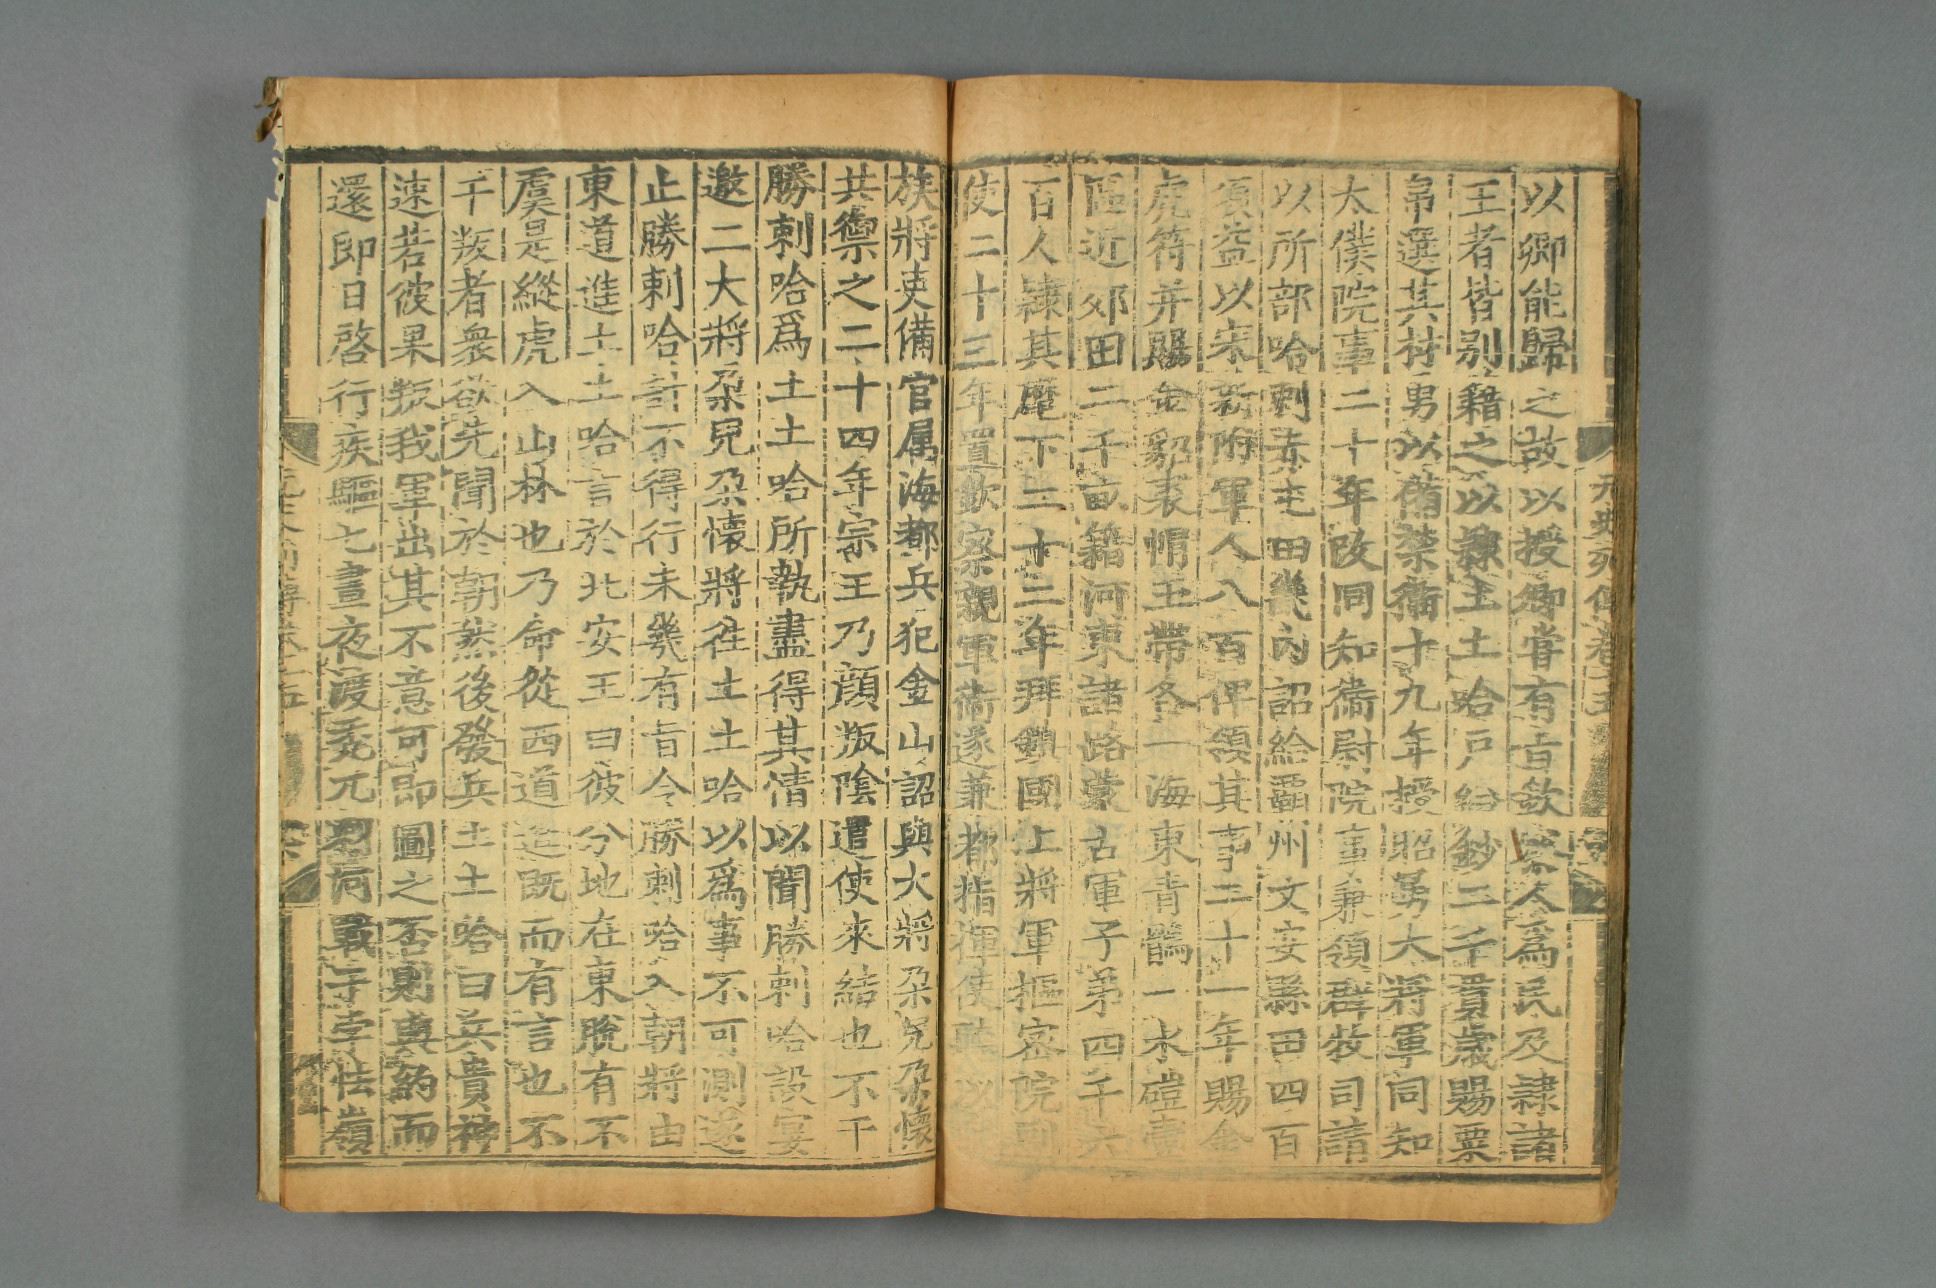 以卿能歸之故以授卿嘗有旨欽察人爲民及隷諸
王者皆别籍之以隷土土哈戶給鈔二千貫歲賜粟
帛選其材勇以備禁衞十九年授昭勇大將軍同知
太僕院事二十年改同知衞尉院事兼領群牧司請
以所部哈剌赤屯田畿內詔給霸州文安縣田四百
頃益以宋新附軍人八百俾領其事二十一年賜金
虎符并賜金貂裘帽玉帶各一海東青鶻一水磑壹
區近郊田二千畝籍河東諸路蒙古軍子弟四千六
百人隷其麾下二十二年拜鎭國上將軍樞密院副
使二十三年置欽察親軍衞遂兼都指揮使聽以
族將吏備官属海都兵犯金山詔與大將朶兒朶懷
共禦之二十四年宗王乃顔叛陰遣使來結也不干
勝剌哈爲土土哈所執盡得其情以聞勝剌哈設宴
邀二大將朶兒朶懷將徃土土哈以爲事不可測遂
止勝剌哈計不得行未幾有旨令勝剌哈入朝將由
東道進土土哈言於北安王曰彼分地在東脫有不
虞是縱虎入山林也乃命從西道進既而有言也不
干叛者衆欲先聞於朝然後發兵土土哈曰兵貴神
速若彼果叛我軍出其不意可即圖之否則與約而
還即日啓行疾驅七晝夜渡禿兀剌河戰于孛怯嶺